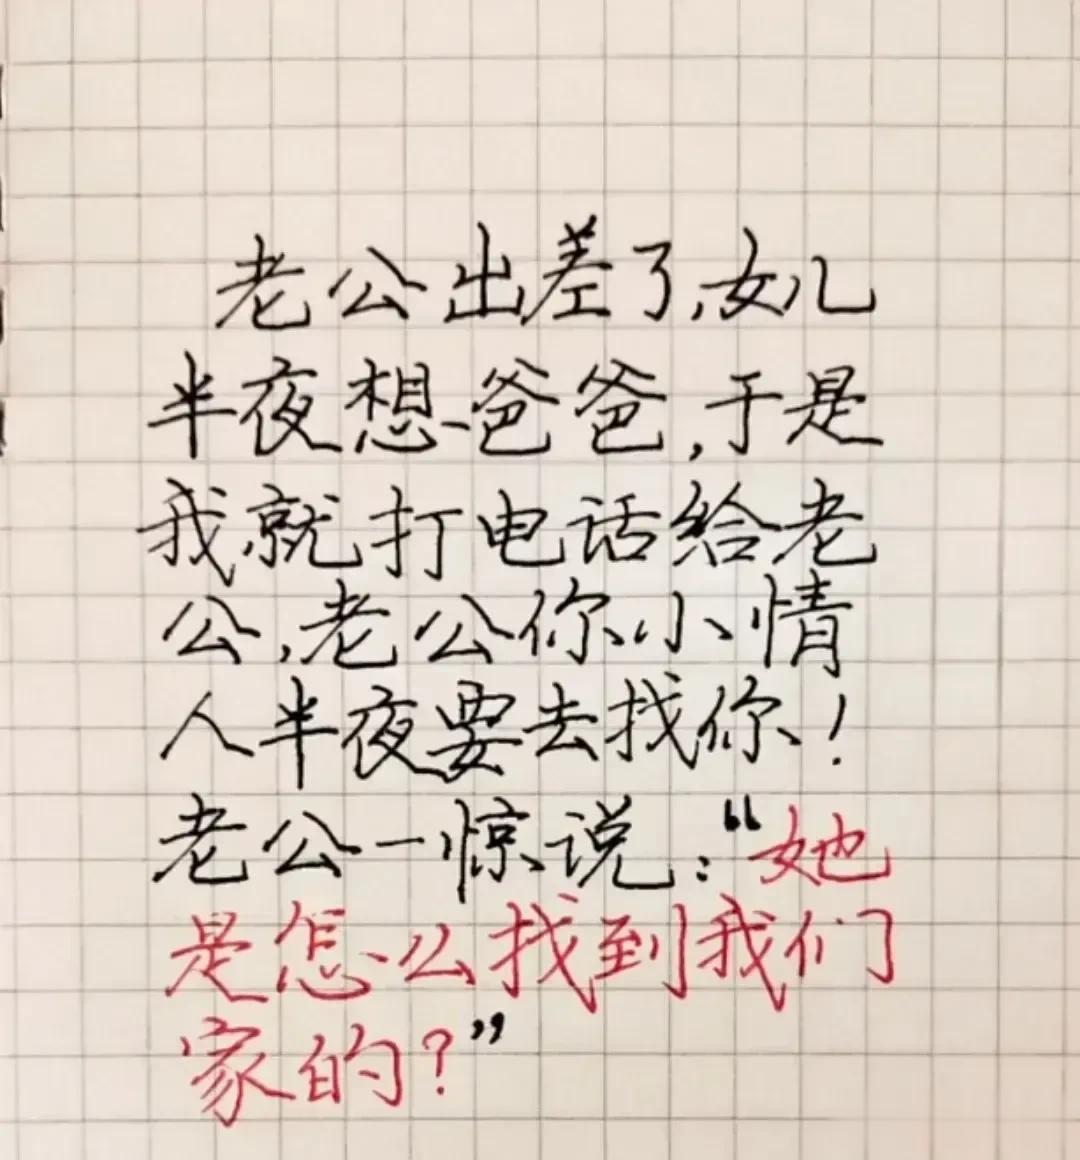 老公出差了,女儿
半夜想爸爸,于是
我就打电话给老
公,老公你小情
人半夜要去找你!
老公一惊说:“她
是怎么找到我们
家的?”